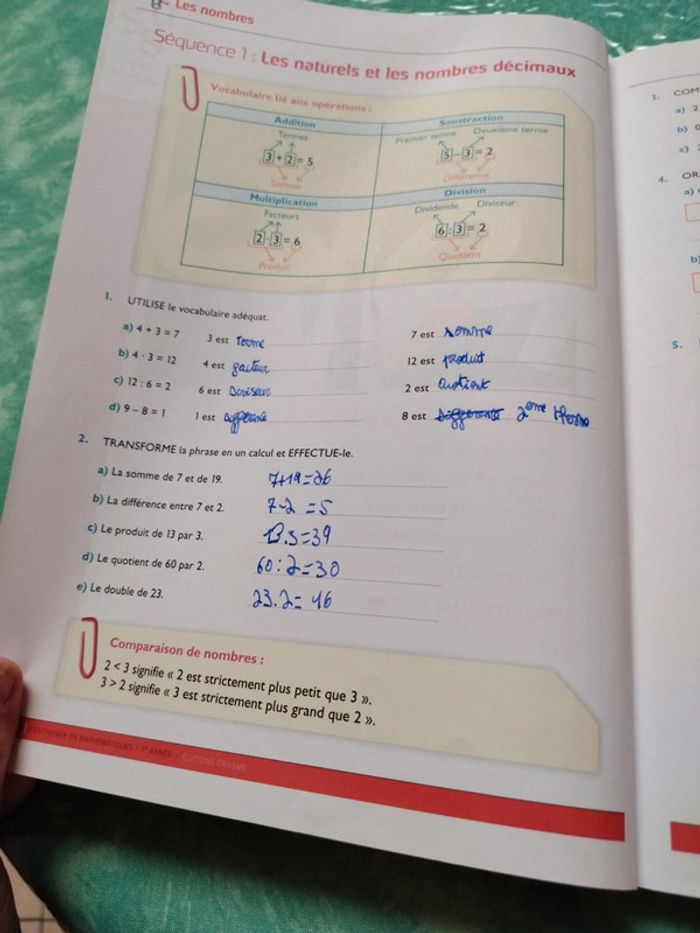 Les nombres
Séquence 1 : Les naturels et les nombres décimaux
Vocabulaire lié aux opérations :
Addition
Termes
3 + 2 = 5
Somme
Soustraction
Premier terme Deuxième terme
5 − 3 = 2
Différence
Multiplication
Facteurs
2 · 3 = 6
Produit
Division
Dividende Diviseur
6 : 3 = 2
Quotient
1. UTILISE le vocabulaire adéquat.
a) 4 + 3 = 7 3 est Terme 7 est somme
b) 4 · 3 = 12 4 est facteur 12 est produit
c) 12 : 6 = 2 6 est Diviseur 2 est quotient
d) 9 − 8 = 1 1 est différence 8 est 2ème
2. TRANSFORME la phrase en un calcul et EFFECTUE-le.
a) La somme de 7 et de 19. 7+19=26
b) La différence entre 7 et 2. 7-2=5
c) Le produit de 13 par 3. 13.3=39
d) Le quotient de 60 par 2. 60:2=30
e) Le double de 23. 23.2=46
Comparaison de nombres :
2 < 3 signifie « 2 est strictement plus petit que 3 ».
3 > 2 signifie « 3 est strictement plus grand que 2 ».
S'ENTRAINER EN MATHÉMATIQUES / 1re ANNÉE – ÉDITIONS ERASME
3. COM
a) 2
b) 0
c)
4. OR
a)
b)
5.